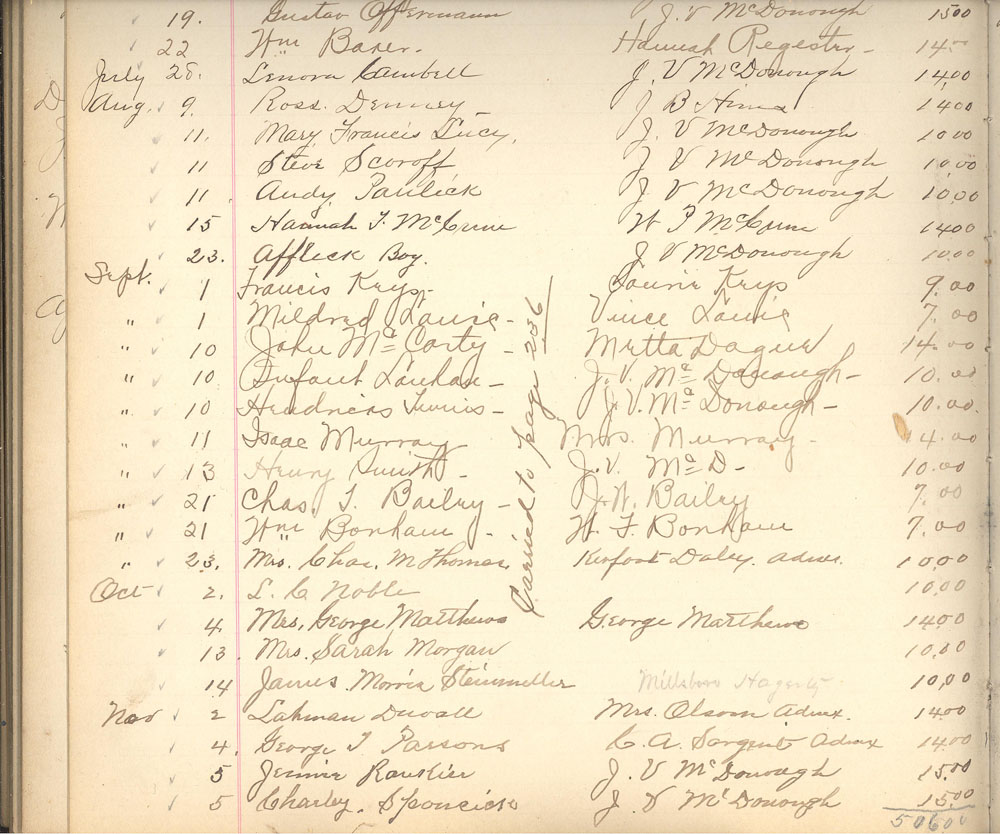 19. Gustav Offermann J. V McDonough 1500
22 Wm Baker. Hannah Register - 14.-
July 28. Lenora Cambell J. V McDonough 14,00
Aug. 9. Ross. Denney J B 1400
" 11. Mary Francis Lucy, J. V McDonough 1000
" 11 Steve Scoroff J V McDonough 10,00
" 11. Andy Paulick J V McDonough 10,00
15 Hannah T. McCune W P McCune 1400
23. Affleck Boy. J. V McDonough 10.00
Sept. 1 Francis Keys- Keys 9.00
" 1 Mildred Laurie - Vince Laurie 7.00
" 10 John McCarty - Metta Dague 14.00
" 10 Infant Lanhan - J. V. McDonough - 10.00
" 10 Hendricks - J. V. McDonough - 10.00.
" 11 Isaac Murray - Mrs. Murray - 14.00
" 13 Henry Smith - J. V. McD - 10.00
" 21 Chas. T. Bailey - J. W. Bailey 7.00
" 21 Wm Bonham - W. F. Bonham 7.00
" 23. Mrs. Chas. M Thomas Kerfoot Daley. admx. 10,00
Oct 2. L. C Noble 10,00
4. Mrs. George Matthews George Matthews 1400
13. Mrs. Sarah Morgan 10,00
14 James Morris Steinmiller Millsboro Hagerty 10,00
Nov 2 Lahman Duvall Mrs. Olsom Admx. 1400
4. George T Parsons C. A. Sargent Admx 1400
5 Jennie J. V McDonough 15.00
5 Charley. J. V McDonough 15,00
50600
Carried to page 256